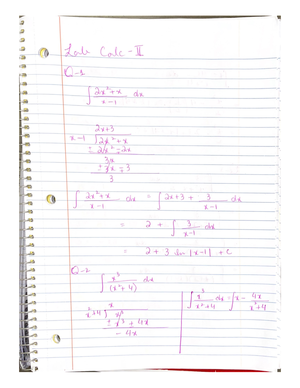 Lab Calc - II
Q-1
∫ 2x²+x / x-1 dx
2x+3
x-1 √2x²+x
± 2x² ∓ 2x
3x
± 3x ∓ 3
3
∫ 2x²+x / x-1 dx = ∫ 2x+3 + 3 / x-1 dx
= 2 + ∫ 3 / x-1 dx
= 2 + 3 ln |x-1| + c
Q-2
∫ x³ / (x²+4) dx
x
x²+4 √x³
± x³ ± 4x
- 4x
∫ x³ / x²+4 dx = ∫ x - 4x / x²+4